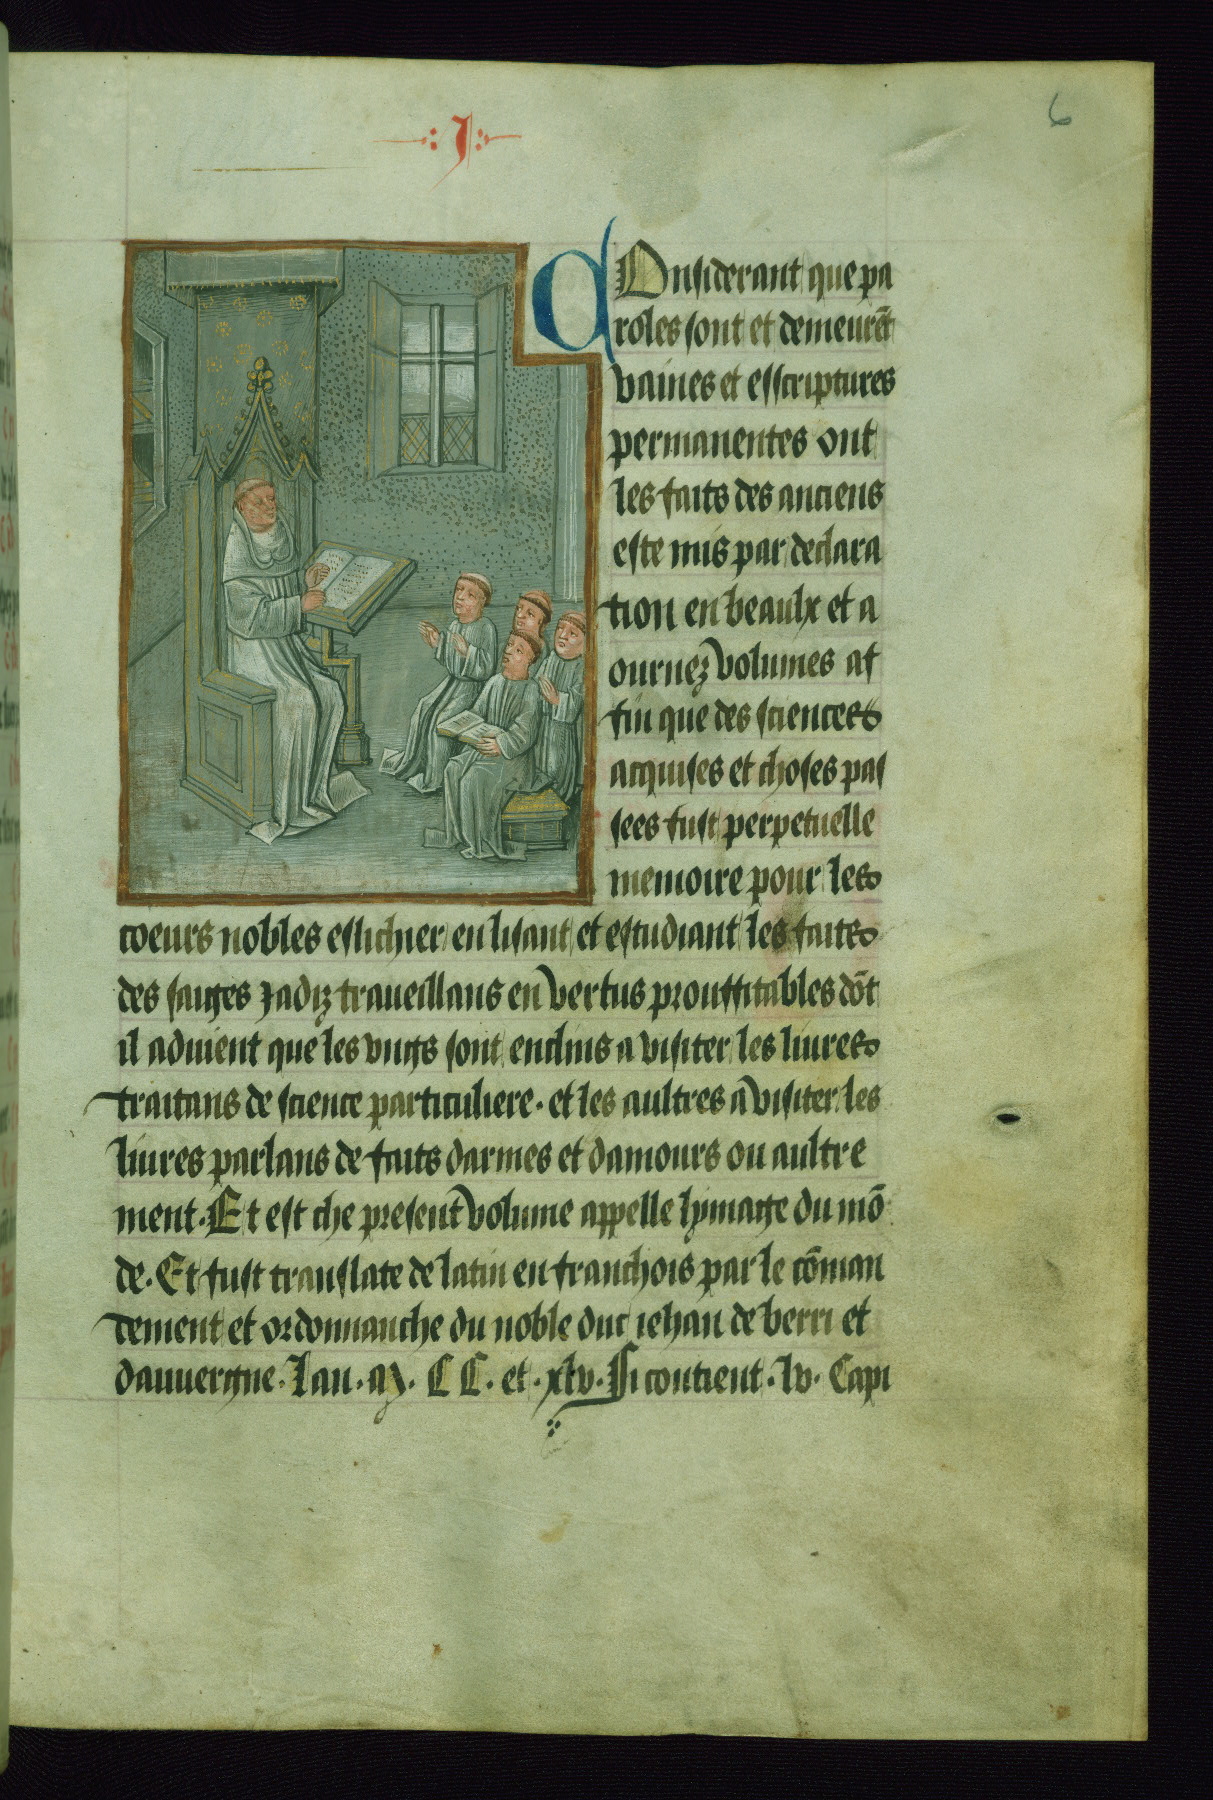 J
6
COnsiderant que pa
roles sont et demeurēt
vaines et esscriptures
permanentes ont
les faits des anciens
este mis par declara
tion en beaulx et a
ournez volumes af
fin que des sciences
acquises et choses pas
sees fust perpetuelle
memoire pour les
coeurs nobles eslichier en lisant et estudiant les faits
des saiges jadiz traueillans en vertus prouffitables dōt
il aduient que les vngs sont enclins a visiter les liures
traitans de science particuliere. et les aultres a visiter les
liures parlans de faits darmes et damours ou aultre
ment. Et est che present volume appelle lymage du mō
de. Et fust translate de latin en franchois par le cōman
dement et ordonnanche du noble duc iehan de berri et
dauuergne. Lan. M. CC. et. xlv. Si contient. lv. Capi